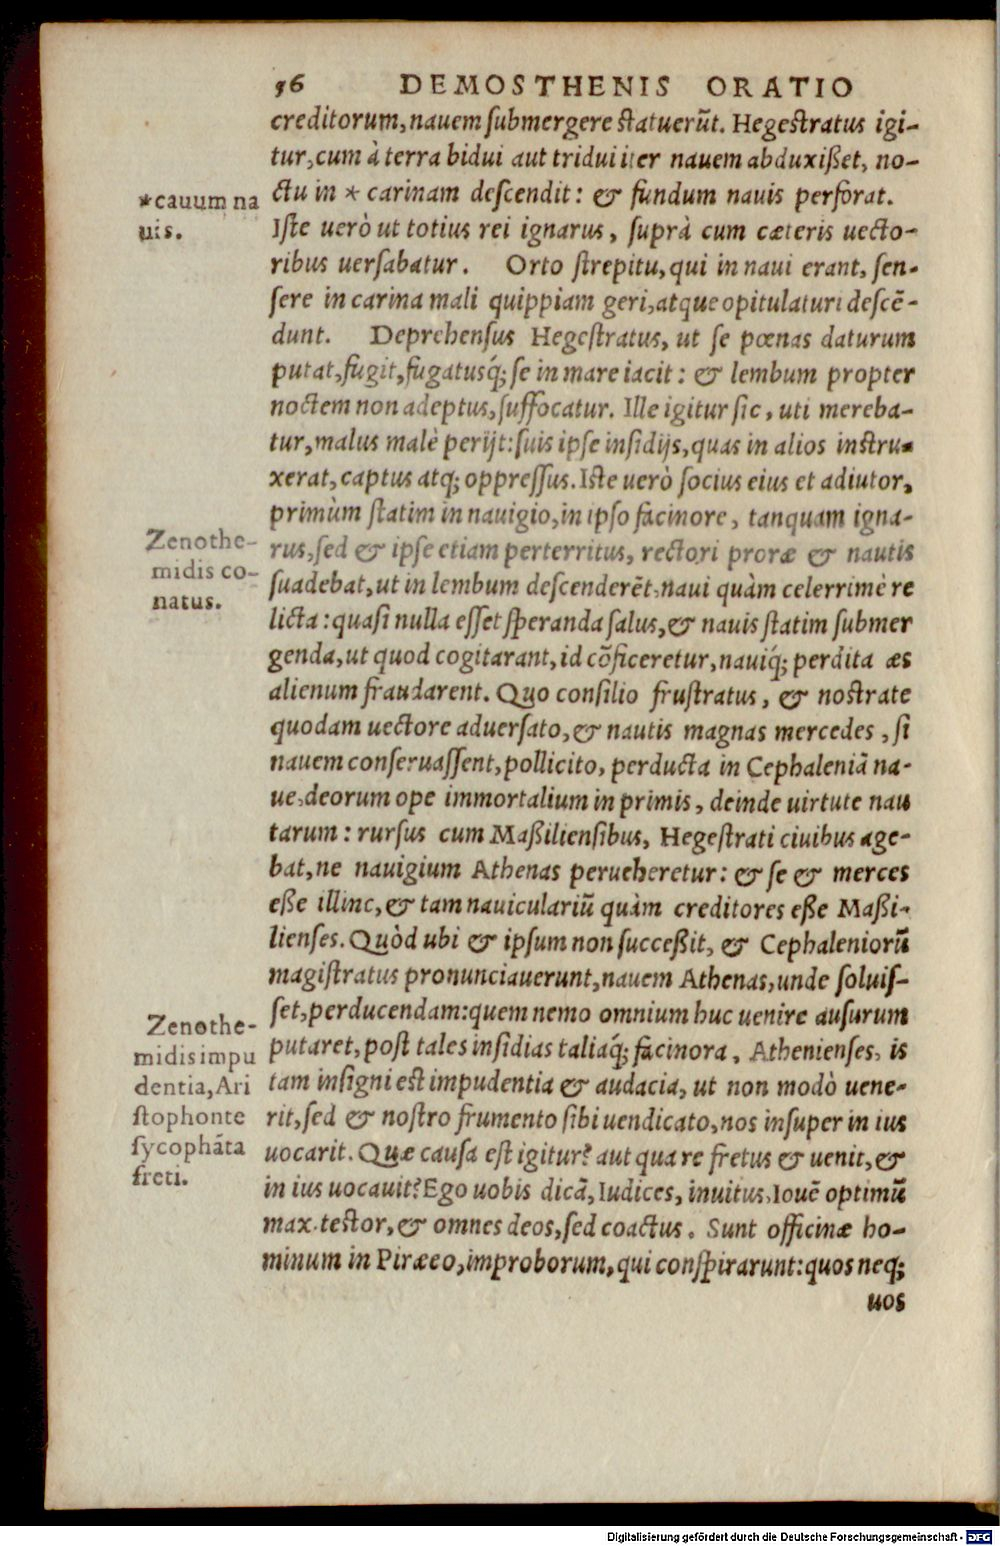 56 DEMOSTHENIS ORATIO
creditorum, nauem submergere statuerũt. Hegestratus igi-
tur, cum à terra bidui aut tridui iter nauem abduxißet, no-
ctu in * carinam descendit: & fundum nauis perforat.
*cauum na
uis.
Iste uerò ut totius rei ignarus, suprà cum cæteris uecto-
ribus uersabatur. Orto strepitu, qui in naui erant, sen-
sere in carina mali quippiam geri, atque opitulaturi descẽ-
dunt. Deprehensus Hegestratus, ut se pœnas daturum
putat, fugit, fugatusq́; se in mare iacit: & lembum propter
noctem non adeptus, suffocatur. Ille igitur sic, uti mereba-
tur, malus malè perijt: suis ipse insidijs, quas in alios instru-
xerat, captus atq; oppressus. Iste uerò socius eius et adiutor,
primùm statim in nauigio, in ipso facinore, tanquam igna-
Zenothe-
midis co-
natus.
rus, sed & ipse etiam perterritus, rectori proræ & nautis
suadebat, ut in lembum descenderẽt, naui quàm celerrimè re
licta: quasi nulla esset speranda salus, & nauis statim submer
genda, ut quod cogitarant, id cõficeretur, nauiq́; perdita æs
alienum fraudarent. Quo consilio frustratus, & nostrate
quodam uectore aduersato, & nautis magnas mercedes, si
nauem conseruassent, pollicito, perducta in Cephaleniã na-
ue, deorum ope immortalium in primis, deinde uirtute nau
tarum: rursus cum Maßiliensibus, Hegestrati ciuibus age-
bat, ne nauigium Athenas perueheretur: & se & merces
eße illinc, & tam nauiculariũ quàm creditores eße Maßi-
lienses. Quòd ubi & ipsum non succeßit, & Cephaleniorũ
magistratus pronunciauerunt, nauem Athenas, unde soluis-
set, perducendam: quem nemo omnium huc uenire ausurum
Zenothe-
midis impu
dentia, Ari
stophonte
sycophãta
freti.
putaret, post tales insidias taliaq́; facinora, Athenienses, is
tam insigni est impudentia & audacia, ut non modò uene-
rit, sed & nostro frumento sibi uendicato, nos insuper in ius
uocarit. Quæ causa est igitur? aut qua re fretus & uenit, &
in ius uocauit? Ego uobis dicã, Iudices, inuitus, Iouẽ optimũ
max. testor, & omnes deos, sed coactus. Sunt officinæ ho-
minum in Piræeo, improborum, qui conspirarunt: quos neq;
uos
Digitalisierung gefördert durch die Deutsche Forschungsgemeinschaft - DFG